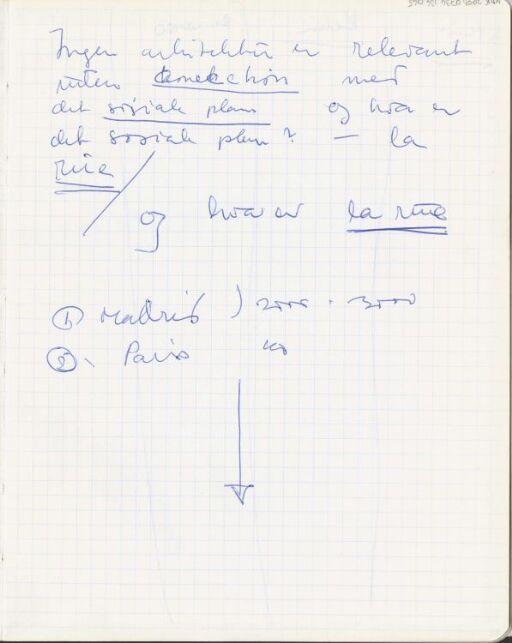 Ingen arkitektur er relevant
uten konekchon med
det sosiale plan og hva er
det sosiale plan? – la
rue
og hva er la rue
① Madrid ) 2000 - 3000
②. Paris